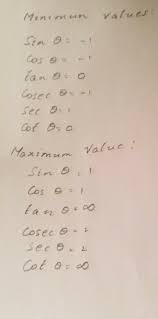 Minimum values:
Sin θ = -1
Cos θ = -1
tan θ = 0
Cosec θ = -1
Sec θ = 1
Cot θ = 0
Maximum value:
Sin θ = 1
Cos θ = 1
tan θ = ∞
Cosec θ = 2
Sec θ = 2
Cot θ = ∞